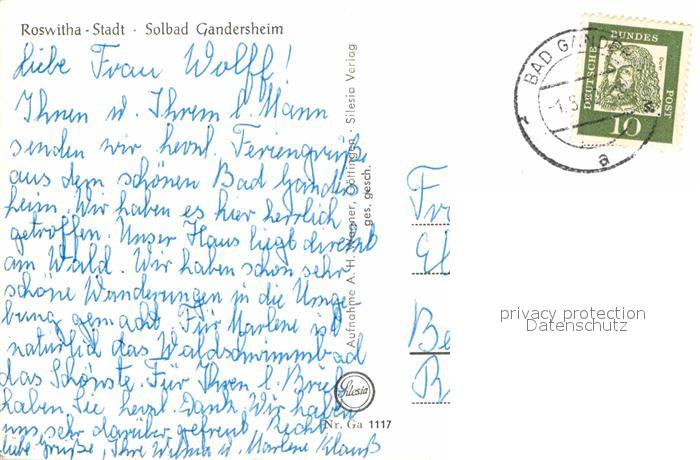 Roswitha-Stadt · Solbad Gandersheim
Liebe Frau Wolff!
Ihnen u. Ihrem l. Mann
senden wir herzl. Feriengrüße
aus dem schönen Bad Ganders
heim. Wir haben es hier herrlich
getroffen. Unser Haus liegt direkt
am Wald. Wir haben schon sehr
schöne Wanderungen in die Umge
bung gemacht. Für Marlene ist
natürlich das Waldschwimmbad
das Schönste. Für Ihren l. Brief
haben Sie herzl. Dank. Wir haben
uns sehr darüber gefreut. Recht
liebe Grüße, Ihre Wilma u. Marlene Klauß
Aufnahme A. H. Wagner, Göttingen Silesia Verlag
ges. gesch.
Silesia
Nr. Ga 1117
BAD GANDE
-1.
a
DEUTSCHE BUNDES POST
Dürer
10
Fr
Be
privacy protection
Datenschutz